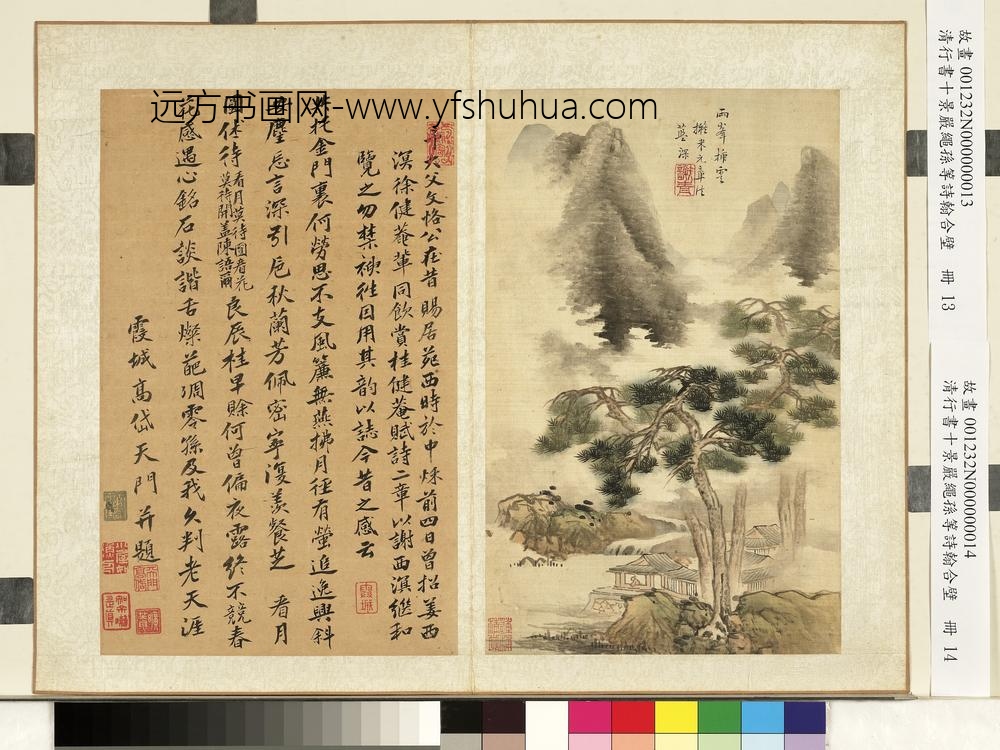 远方书画网-www.yfshuhua.com
故畫 001232N000000013
清行書十景嚴繩孫等詩翰合壁 冊 13
故畫 001232N000000014
清行書十景嚴繩孫等詩翰合壁 冊 14
兩峯插雲
擬米元章法
藍深
大父文恪公在昔賜居苑西時於中秌前四日曾招姜西
溟徐健菴輩同飲賞桂健菴賦詩二章以謝西溟繼和
覽之勿禁神往因用其韵以誌今昔之感云
托金門裏何勞思不支風簾無燕拂月徑有螢追逸興斜
塵忘言深引卮秋蘭芳佩密寧復羨餐芝 看月
休待看月莫待圓看花莫待開蓋陳語爾良辰桂早賒何曾偏夜露終不競春
感遇心銘石談諧舌燦葩凋零孫及我久判老天涯
霞城高岱天門并題
霞城